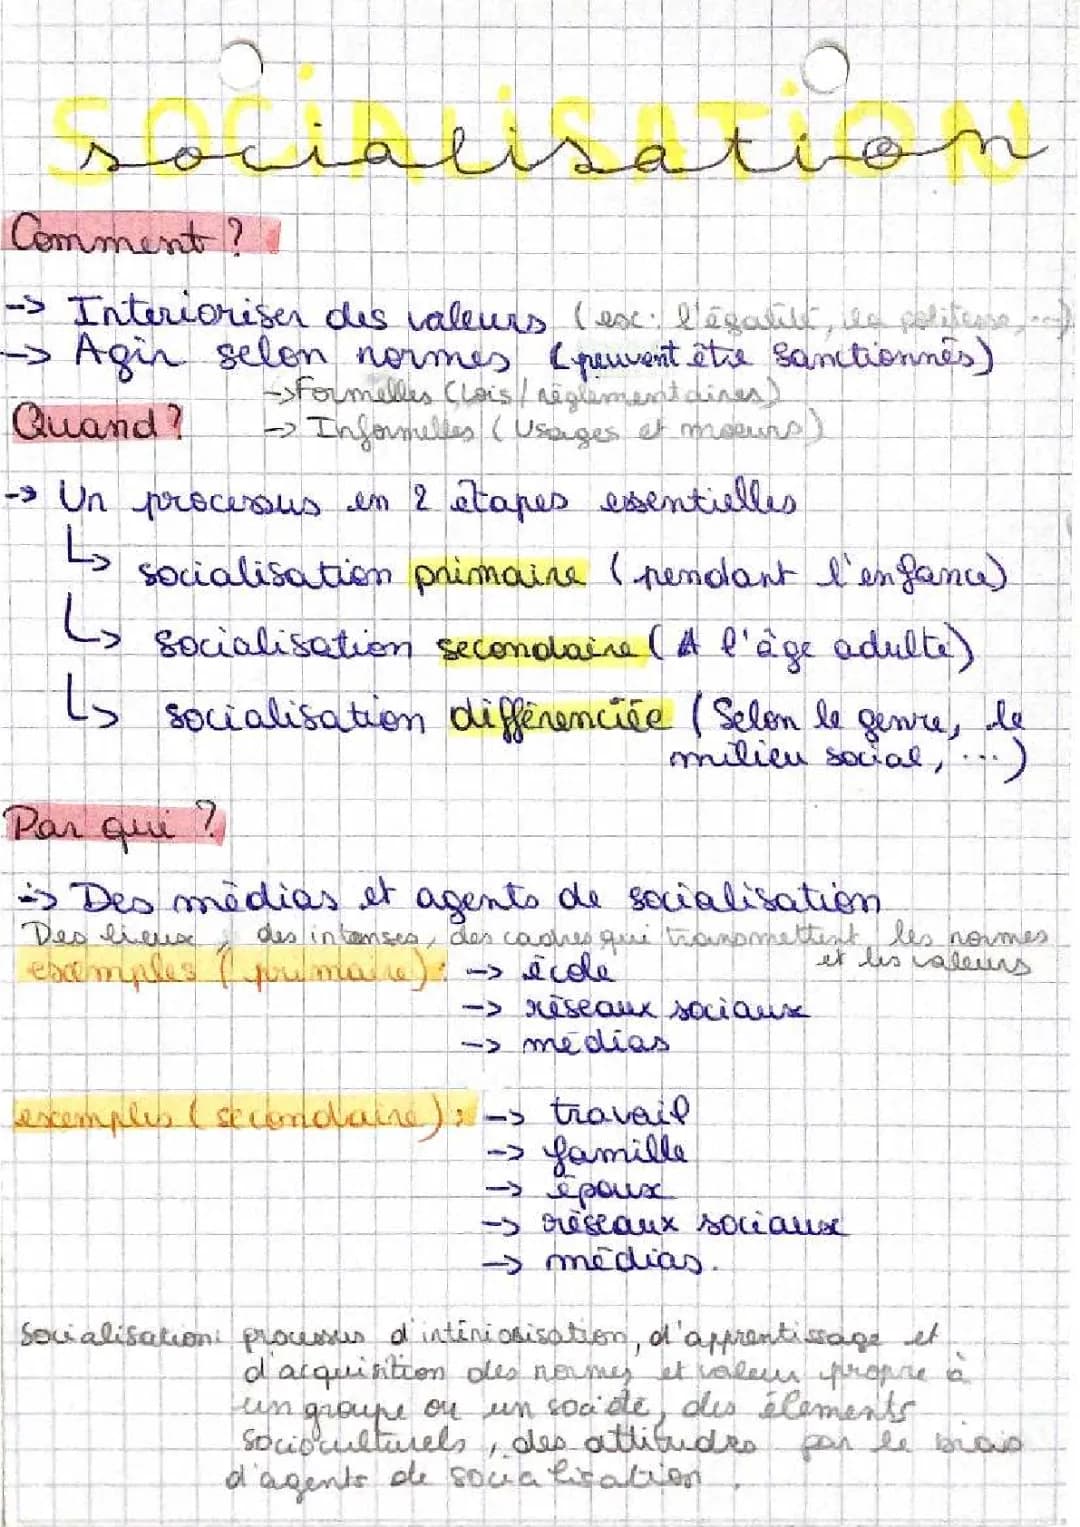 SOCIALISATION
socialisation
Comment ?
-> Interioriser des valeurs (ex: l'égalité, la politesse, ...)
-> Agir selon normes (peuvent être sanctionnés)
-> Formelles (Lois / règlementaires)
Quand ?
-> Informelles (Usages et moeurs)
-> Un processus en 2 étapes essentielles
↳ socialisation primaire (pendant l'enfance)
↳ socialisation secondaire (A l'âge adulte)
↳ socialisation différenciée (Selon le genre, le
milieu social, ...)
Par qui ?
-> Des médias et agents de socialisation
Des lieux, des intanses, des cadres qui transmettent les normes
et les valeurs
exemples (primaire) : -> école
-> réseaux sociaux
-> médias
exemples (secondaire) : -> travail
-> famille
-> époux
-> réseaux sociaux
-> médias.
Socialisation: processus d'intériorisation, d'apprentissage et
d'acquisition des normes et valeur propre à
un groupe ou un société, des élements
socioculturels, des attitudes par le biais
d'agents de socialisation.